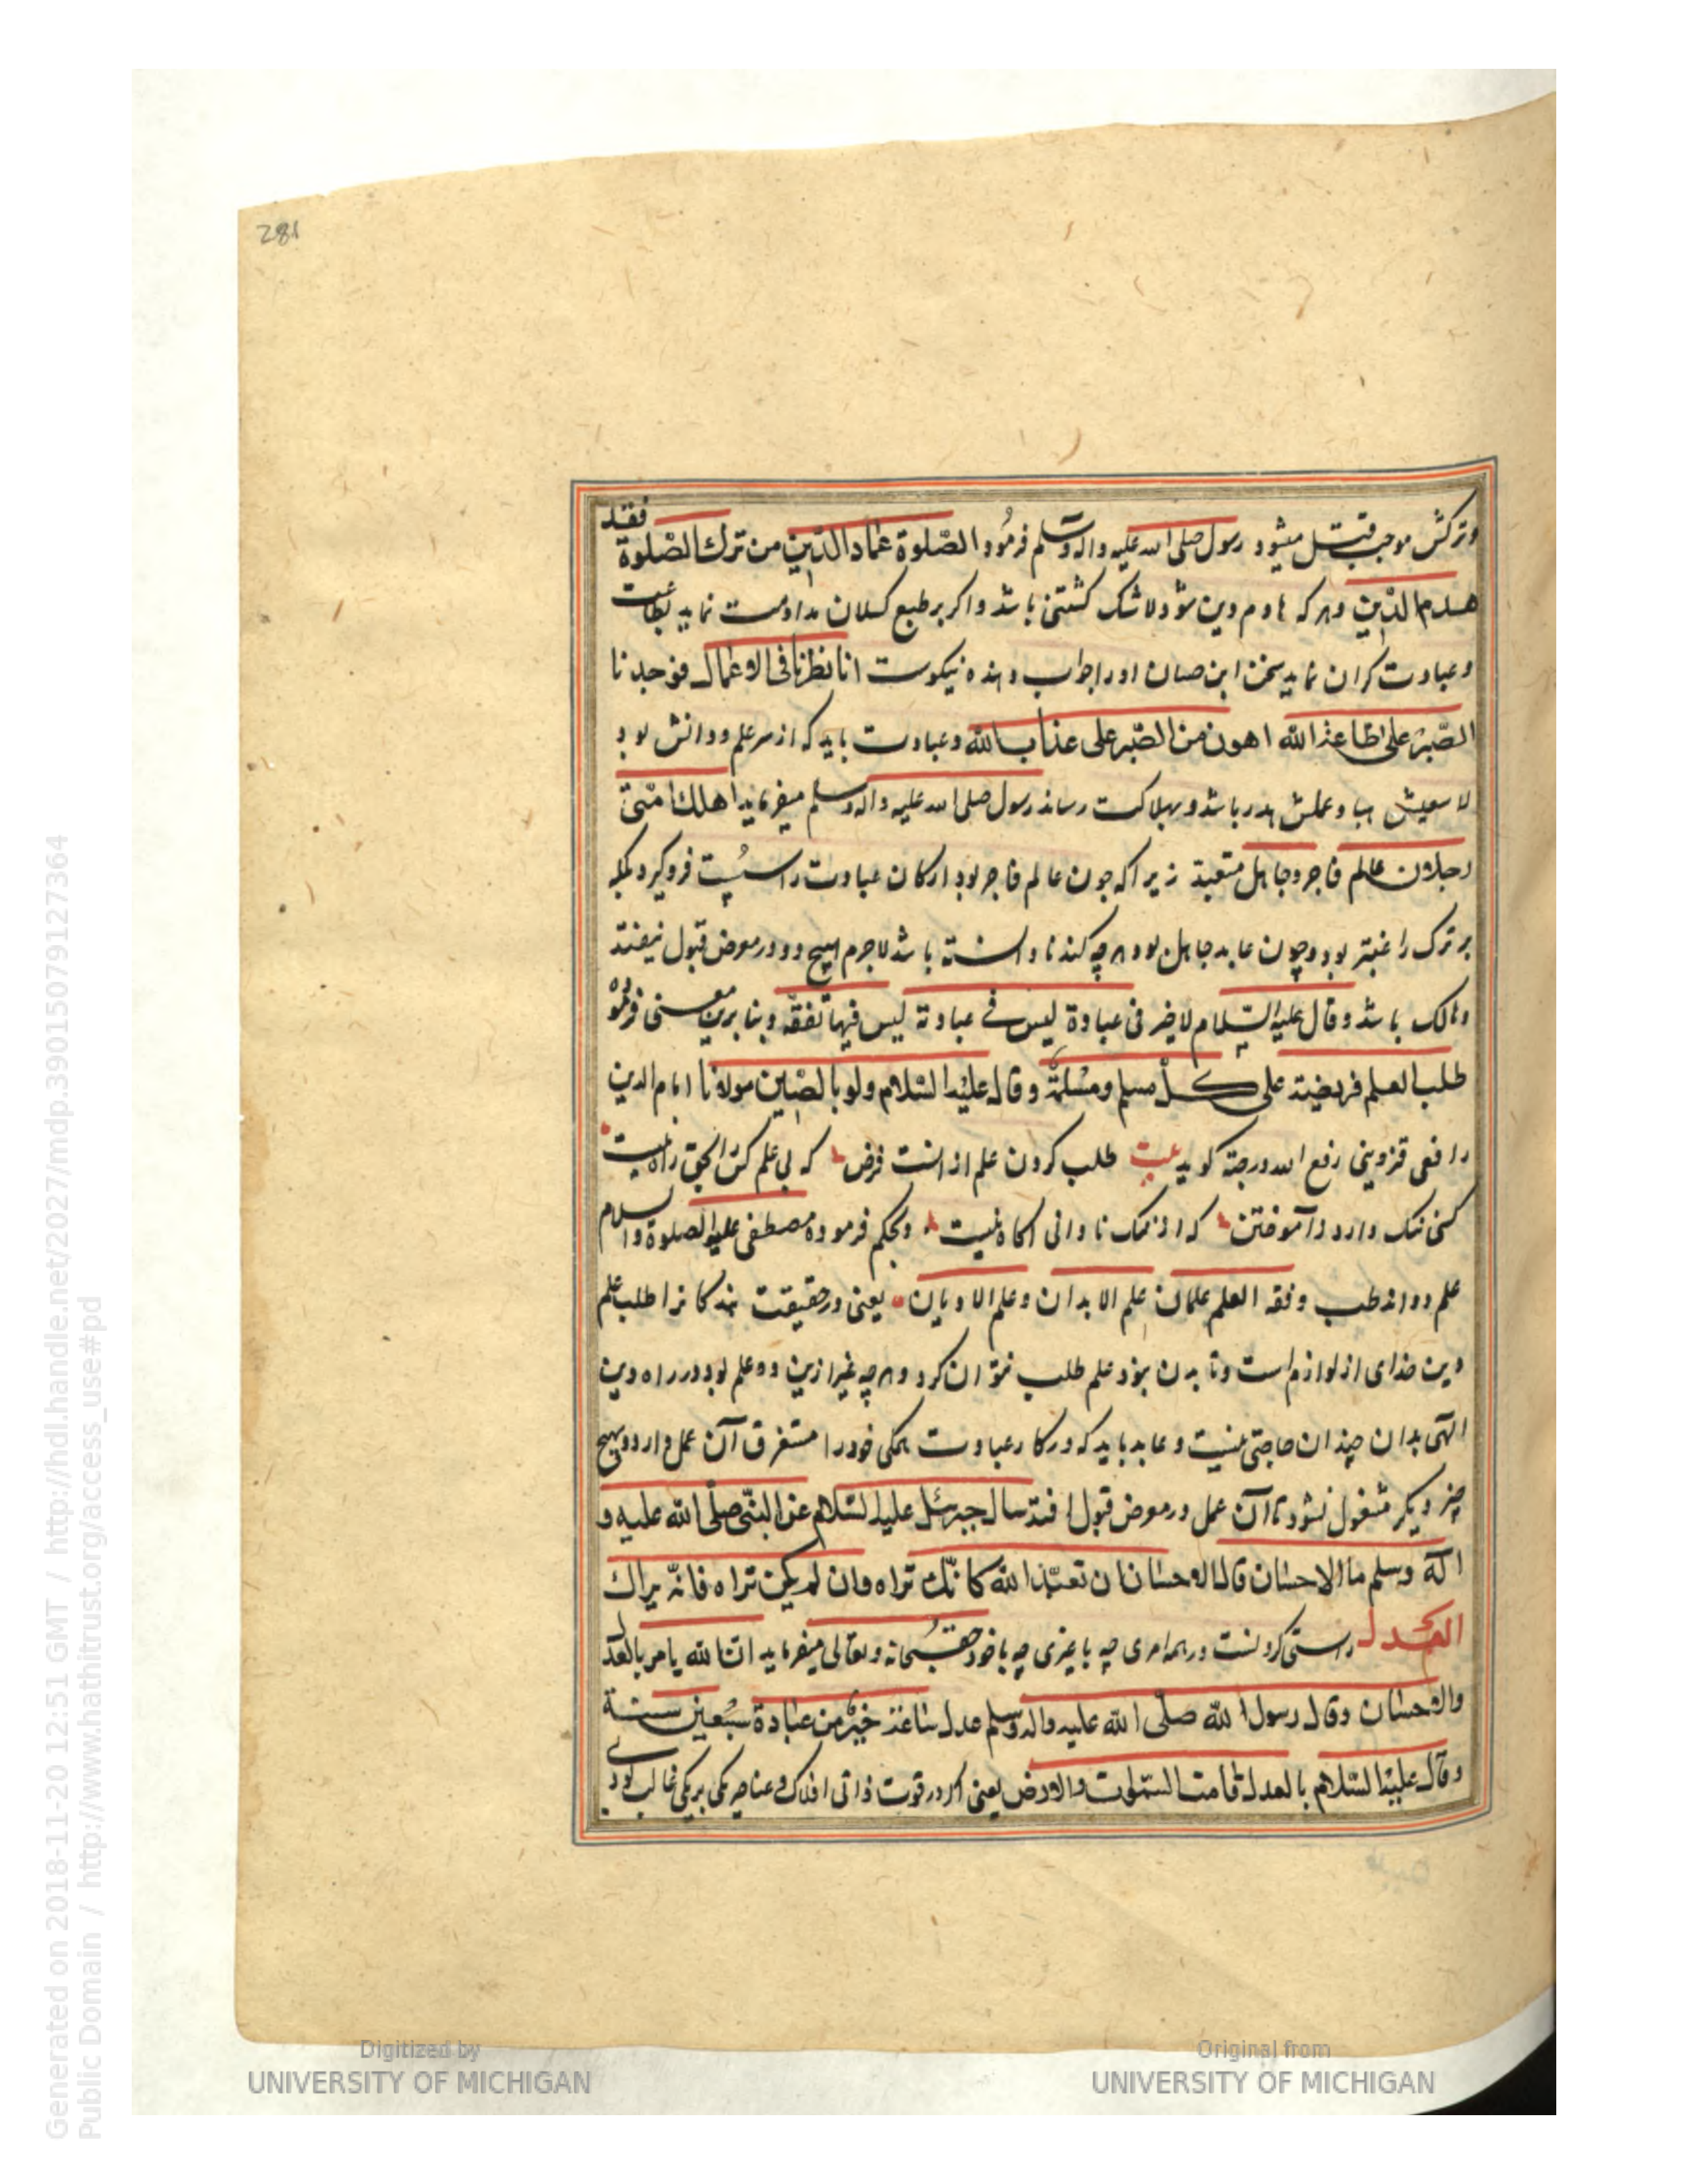 281
وترکش موجب قتل میشود رسول صلی الله علیه واله وسلم فرمود الصّلوة عماد الدّین من ترك الصّلوة فقد
هدم الدّین وهر که هادم دین شود لاشک کشتنی باشد واکر بر طبع کسلان مداومت نماید بطاعت
وعبادت کران نماید سخن ابن حسان اورا جواب دهنده نیکوست انا نظرنا فی الاعمال فوجدنا
الصّبر علی اطاعة الله اهون من الصّبر علی عذاب الله وعبادت باید که از سر علم ودانش بود
لا سعیش هبا وعملش هدر باشد وبهلاکت رساند رسول صلی الله علیه واله وسلم میفرماید اهلك امتی
رجلان عالم فاجر وجاهل متعبد زیرا که چون عالم فاجر بود ارکان عبادت را سست فروکیرد بلکه
بر ترک راغبتر بود وچون عابد جاهل بود هر چه کند نادانسته باشد لاجرم هیچ دو در معرض قبول نیفتد
وهالک باشد وقال علیه السّلام لا خیر فی عبادة لیس فی عبادته لیس فیها تفقّه وبنا برین معنی فرمود
طلب العلم فریضة علی کلّ مسلم ومسلمة وقال علیه السّلام ولو بالصّین مولانا امام الدین
رافعی قزوینی رفع الله درجته کوید بیت طلب کردن علم ازانست فرض که بی علم کس را بحق راه نیست
کسی ننک دارد ز آموختن که از ننک نادانی آکاه نیست وبحکم فرموده مصطفی علیه الصلوة والسلام
علم دواند طب وفقه العلم علمان علم الابدان وعلم الادیان یعنی در حقیقت بندکانرا طلب علم
دین خدای از لوازم است وتا بدن نبود علم طلب نتوان کرد وهر چه غیر ازین دو علم بود در راه دین
الهی بدان چندان حاجتی نیست وعابد باید که در کار عبادت همکی خود را مستغرق آن عمل دارد وبهیچ
چیز دیکر مشغول نشود تا آن عمل در معرض قبول افتد سال جبرئل علیه السّلام عن النبّی صلّی الله علیه و
اله وسلم ما الاحسان قال الاحسان ان تعبد الله کانّك تراه وان لم یکن تراه فانّه یراك
العدل راستی کردنست در همه امری چه با غیری چه با خود حق سبحانه وتعالی میفرماید ان الله یامر بالعدل
والاحسان وقال رسول الله صلّی الله علیه واله وسلم عدل ساعة خیر من عبادة سبعین سنة
وقال علیه السّلام بالعدل قامت السّموات والارض یعنی اکر در قوت ذاتی افلاک وعناصر یکی بر یکی غالب بودی
Digitized by
UNIVERSITY OF MICHIGAN
Original from
UNIVERSITY OF MICHIGAN
Generated on 2018-11-20 12:51 GMT / http://hdl.handle.net/2027/mdp.39015079127364
Public Domain / http://www.hathitrust.org/access_use#pd